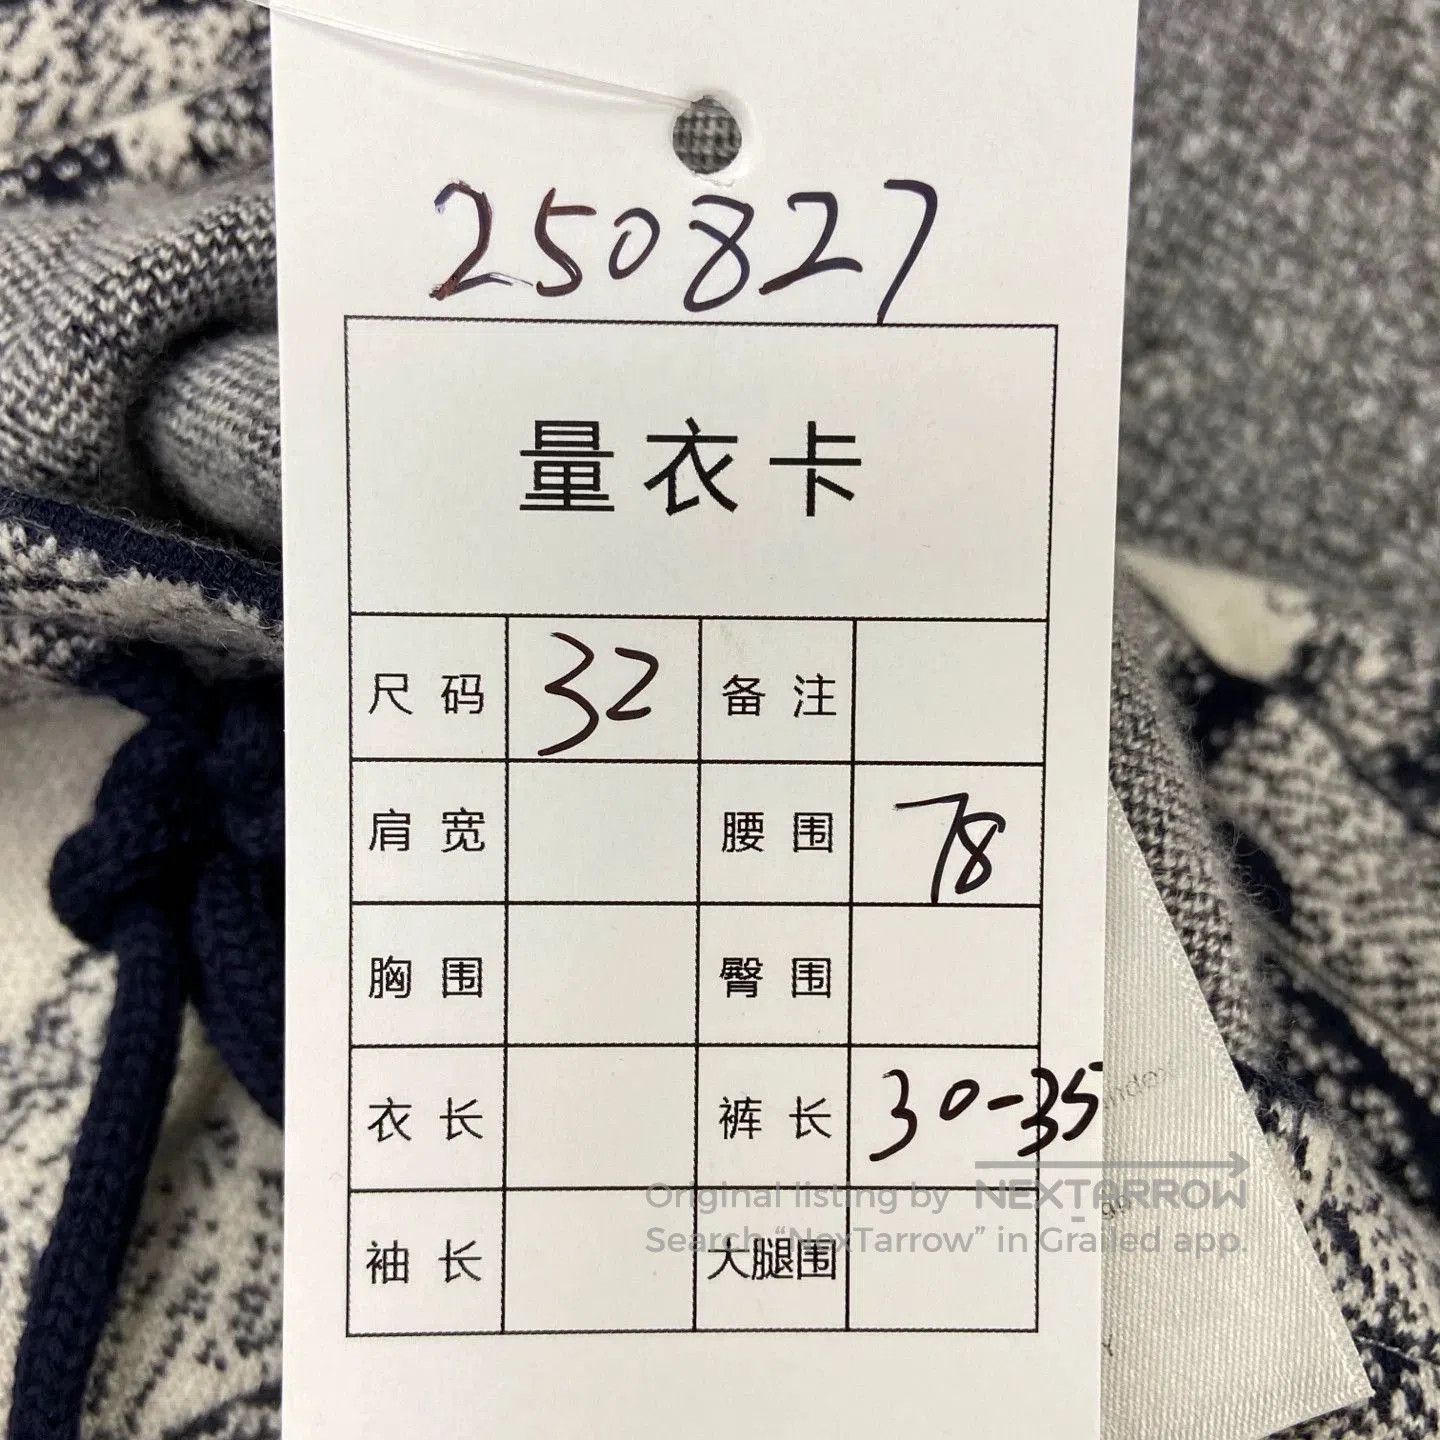 250827
量衣卡
尺码 32 备注
肩宽 腰围 78
胸围 臀围
衣长 裤长 30-35
袖长 大腿围
Original listing by NEXTARROW
Search “NexTarrow” in Grailed app.